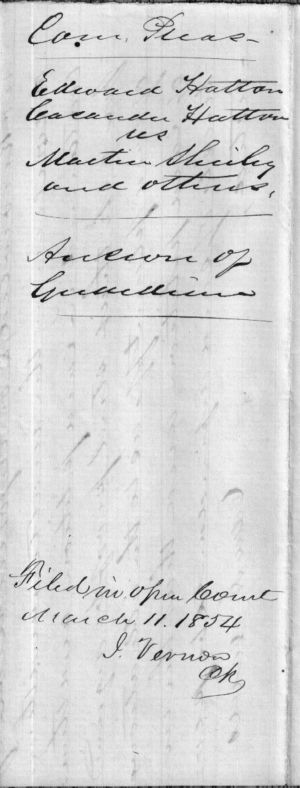 Com. Pleas
Edward Hatton
Casander Hatton
vs
Martin Shirley
and others,
Answer of
Guardian
Filed in open Court
March 11. 1854
J. Vernon
Clk